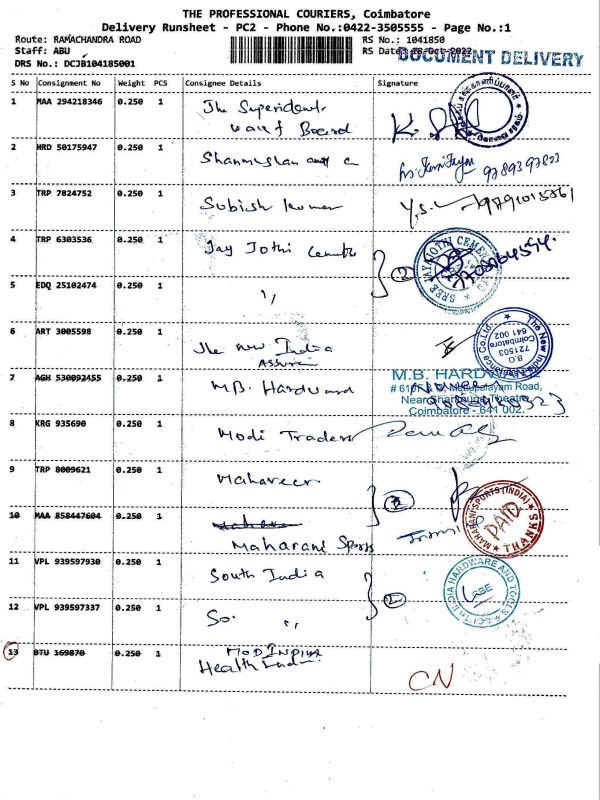 THE PROFESSIONAL COURIERS, Coimbatore
Delivery Runsheet - PC2 - Phone No.:0422-3505555 - Page No.:1
Route: RAMACHANDRA ROAD
RS No.: 1041850
Staff: ABU
RS Date: 18-Oct-2022
DOCUMENT DELIVERY
DRS No.: DCJB104185001
S No Consignment No Weight PCS Consignee Details Signature
1 MAA 294218346 0.250 1 The Superident
wakf Board
2 HRD 50175947 0.250 1 9789397823
3 TRP 7824752 0.250 1 Subish kumar Y.S.
4 TRP 6303536 0.250 1 Jay Jothi (2)
5 EDQ 25102474 0.250 1 "
SREE JAYAJOTHI CEMENT
6 ART 3005598 0.250 1 The New India
Assurn
The New India Co.Ltd.
B.O
721503
Coimbatore
641 002
7 AGH 530092455 0.250 1 M.B. Hardward
M.B. HARDWARE
Mettupalayam Road,
Near Shanmuga Theatre,
Coimbatore - 641 002.
8 KRG 935690 0.250 1 Modi Traders
9 TRP 8009621 0.250 1 Mahaveer (2)
10 MAA 858447604 0.250 1
Maharani Sports
MAHARANI SPORTS (INDIA)
PAID
THANKS
11 VPL 939597930 0.250 1 South India
12 VPL 939597337 0.250 1 So. " (2)
SOUTH INDIA HARDWARE AND TOOLS
13 BTU 169870 0.250 1 MOD INDIYA
Health
CN